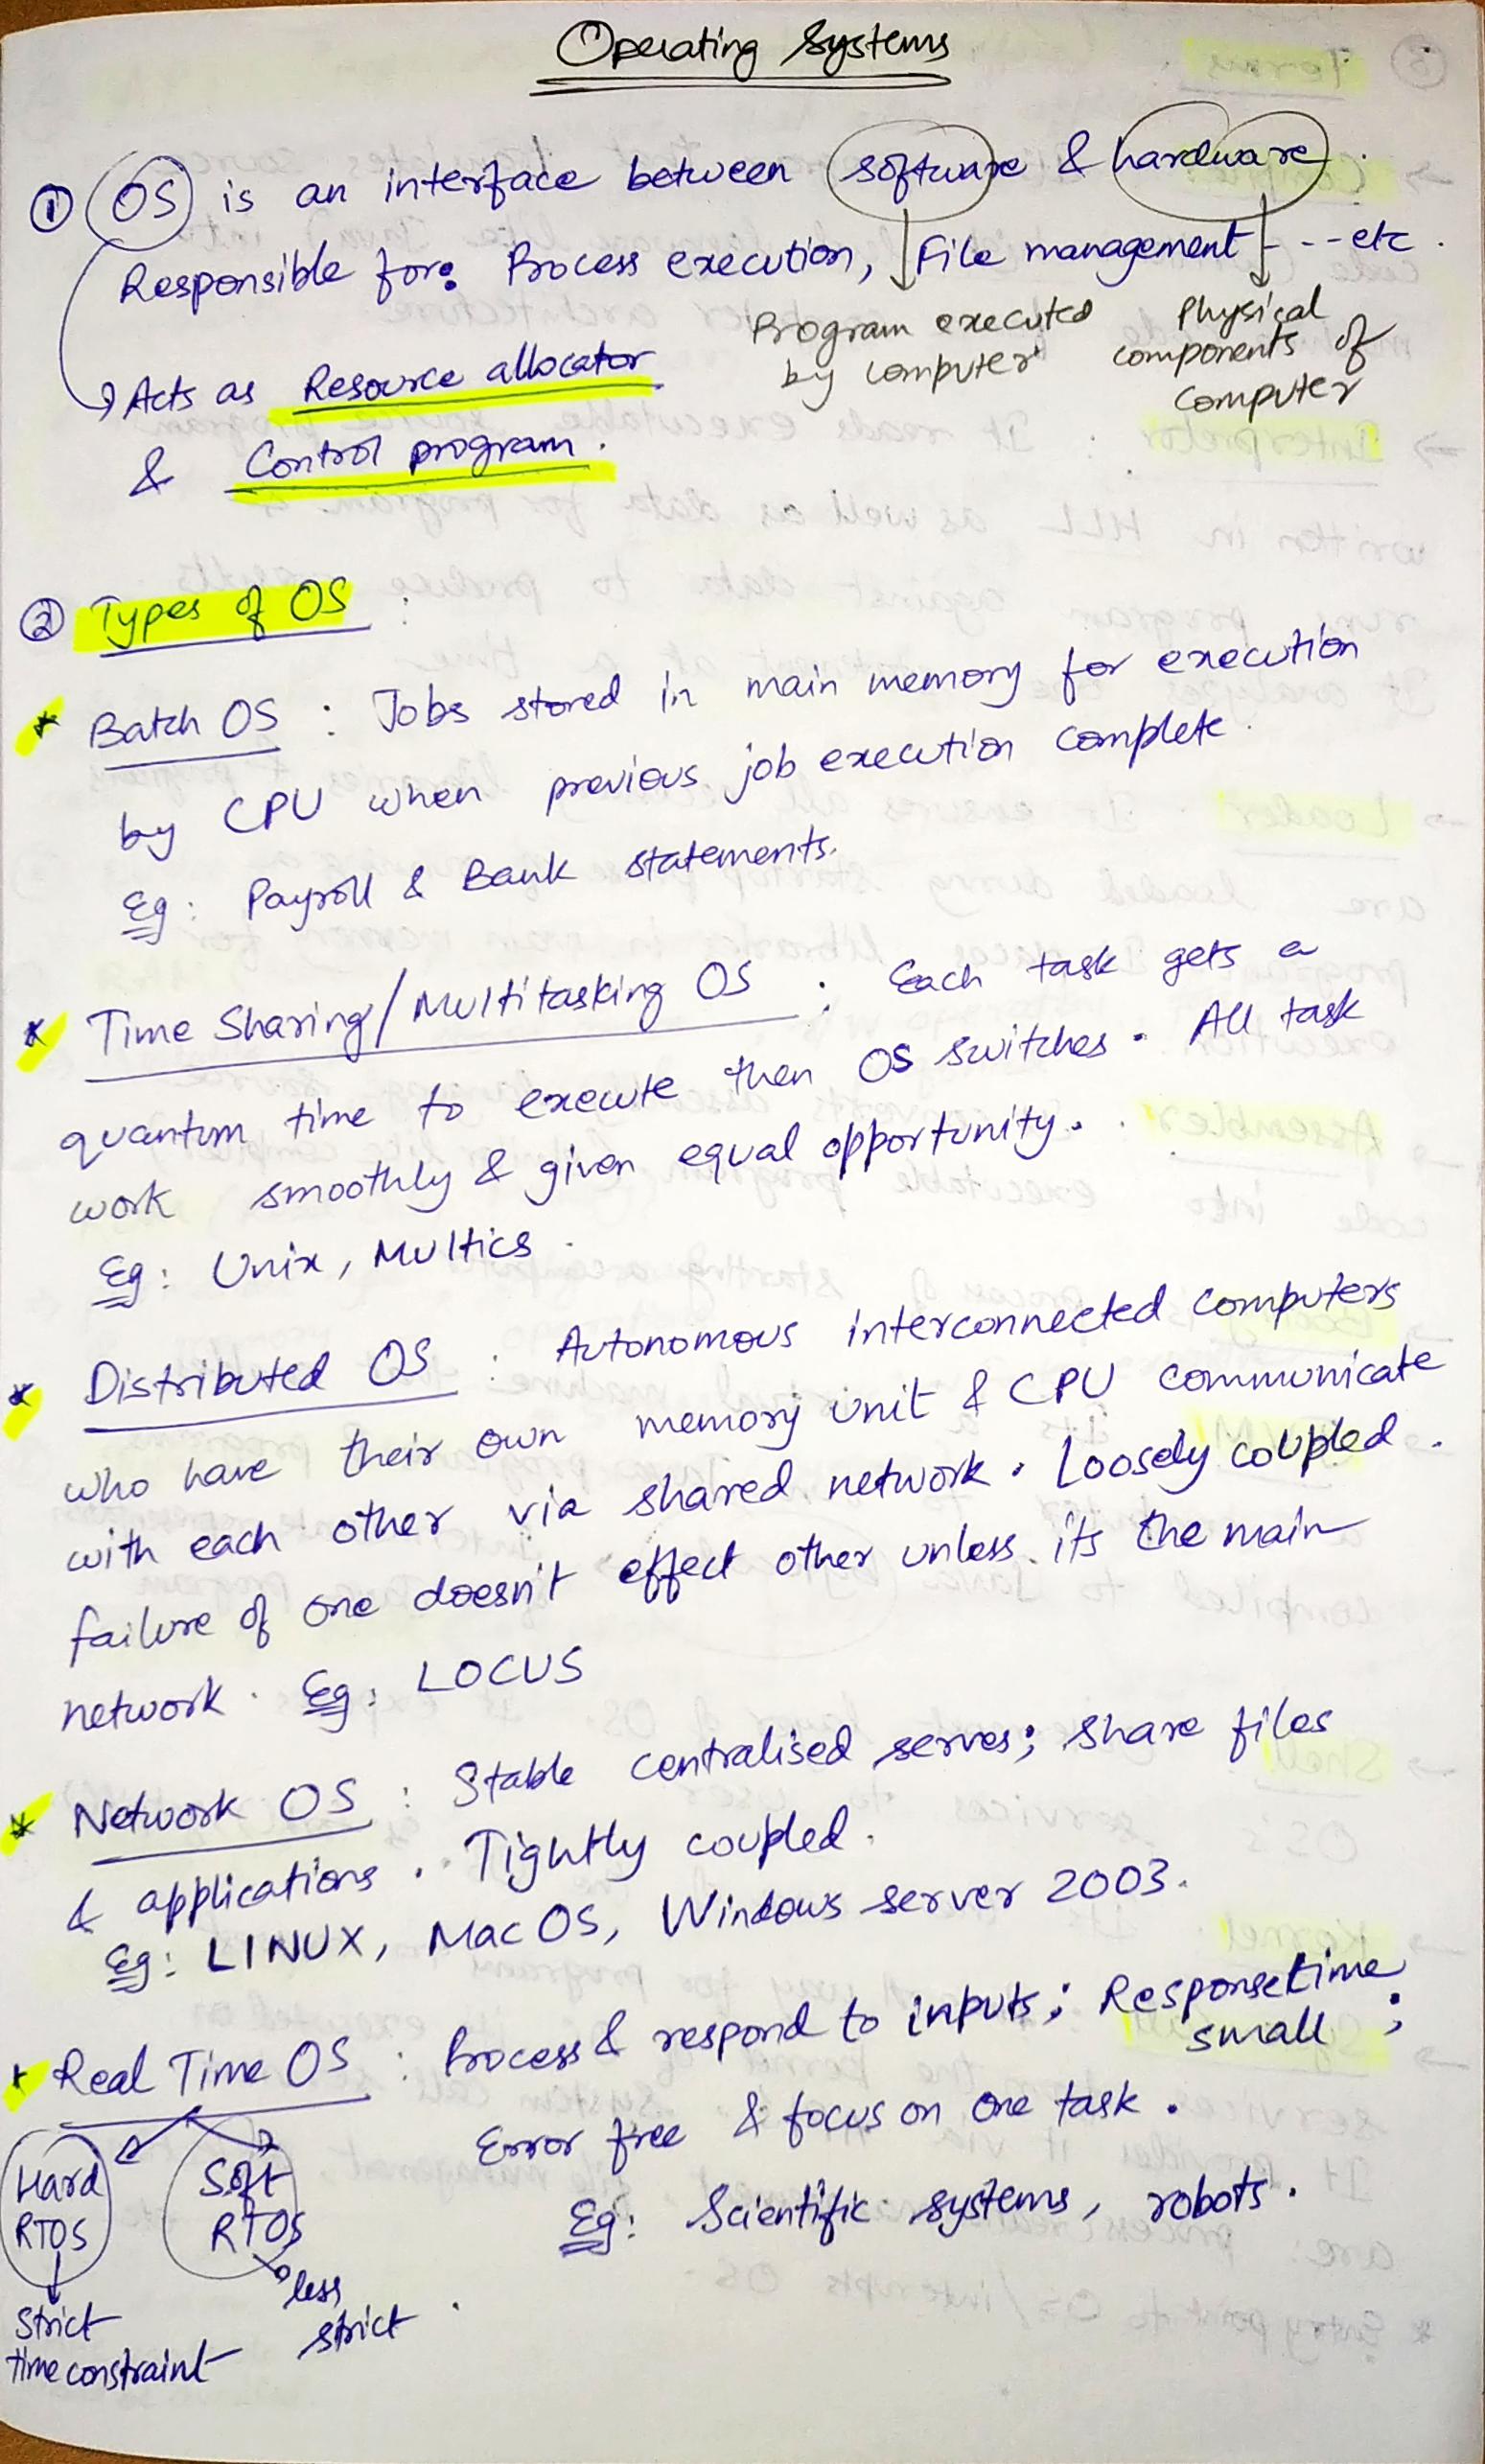 Operating Systems
① OS is an interface between software & hardware.
Responsible for: Process execution, File management --- etc.
Program executed by computer
Physical components of computer
Acts as Resource allocator
& Control program.
② Types of OS :
* Batch OS : Jobs stored in main memory for execution
by CPU when previous job execution complete.
Eg: Payroll & Bank statements.
* Time Sharing/Multitasking OS : Each task gets a
quantum time to execute then OS switches. All task
work smoothly & given equal opportunity.
Eg: Unix, Multics.
* Distributed OS : Autonomous interconnected computers
who have their own memory unit & CPU communicate
with each other via shared network. Loosely coupled.
failure of one doesn't effect other unless its the main
network. Eg: LOCUS
* Network OS : Stable centralised serves; share files
& applications. Tightly coupled.
Eg: LINUX, Mac OS, Windows server 2003.
* Real Time OS : Process & respond to inputs; Response time
small ;
Error free & focus on one task.
Eg: Scientific systems, robots.
Hard RTOS
Strict
time constraint
Soft RTOS
less
strict.